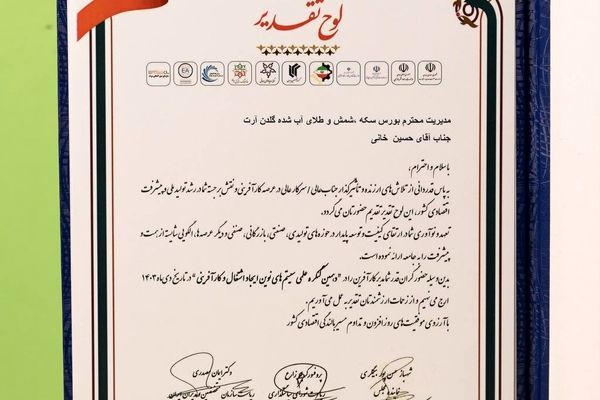 لوح تقدیر
مدیریت محترم بورس سکه ،شمش و طلای آب شده گلدن آرت
جناب آقای حسین خانی
باسلام و احترام،
به پاس قدردانی از تلاش‌های ارزنده و تاثیرگذار جنابعالی / سرکارعالی در عرصه کارآفرینی و نقش برجسته شما در رشد تولید ملی و پیشرفت
اقتصادی کشور، این لوح تقدیر تقدیم حضورتان می‌گردد.
تعهد و نوآوری شما در ارتقای کیفیت و توسعه پایدار در حوزه‌های تولیدی، صنعتی، بازرگانی، صنفی و دیگر عرصه‌ها، الگویی شایسته از همت و
پیشرفت را به جامعه ارائه نموده است.
بدین وسیله حضور گران قدر شما مدیر کارآفرین را در "دهمین کنگره علمی سیستم‌های نوین ایجاد اشتغال و کارآفرینی" در تاریخ دی ماه ۱۴۰۳
ارج می نهیم و از زحمات ارزشمندتان تقدیر به عمل می‌آوریم.
با آرزوی موفقیت‌های روزافزون و تداوم مسیر بالندگی اقتصادی کشور